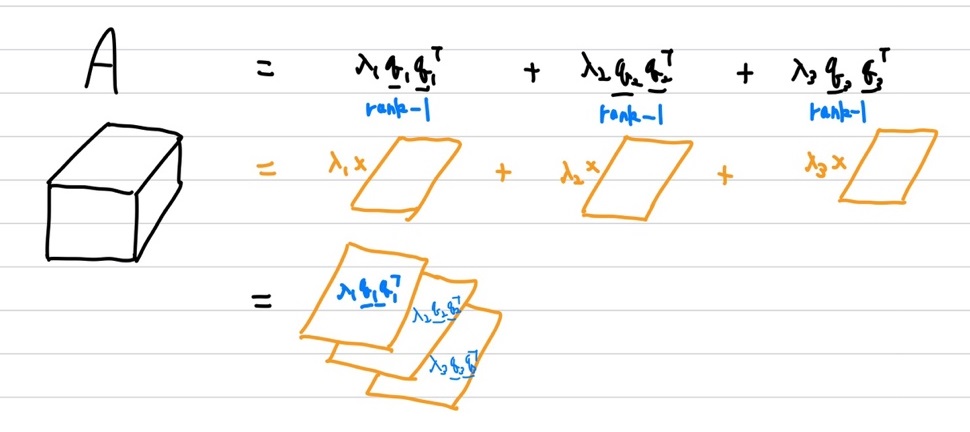 A = λ₁q₁q₁ᵀ + λ₂q₂q₂ᵀ + λ₃q₃q₃ᵀ
rank-1 rank-1 rank-1
= λ₁× + λ₂× + λ₃×
=
λ₁q₁q₁ᵀ
λ₂q₂q₂ᵀ
λ₃q₃q₃ᵀ